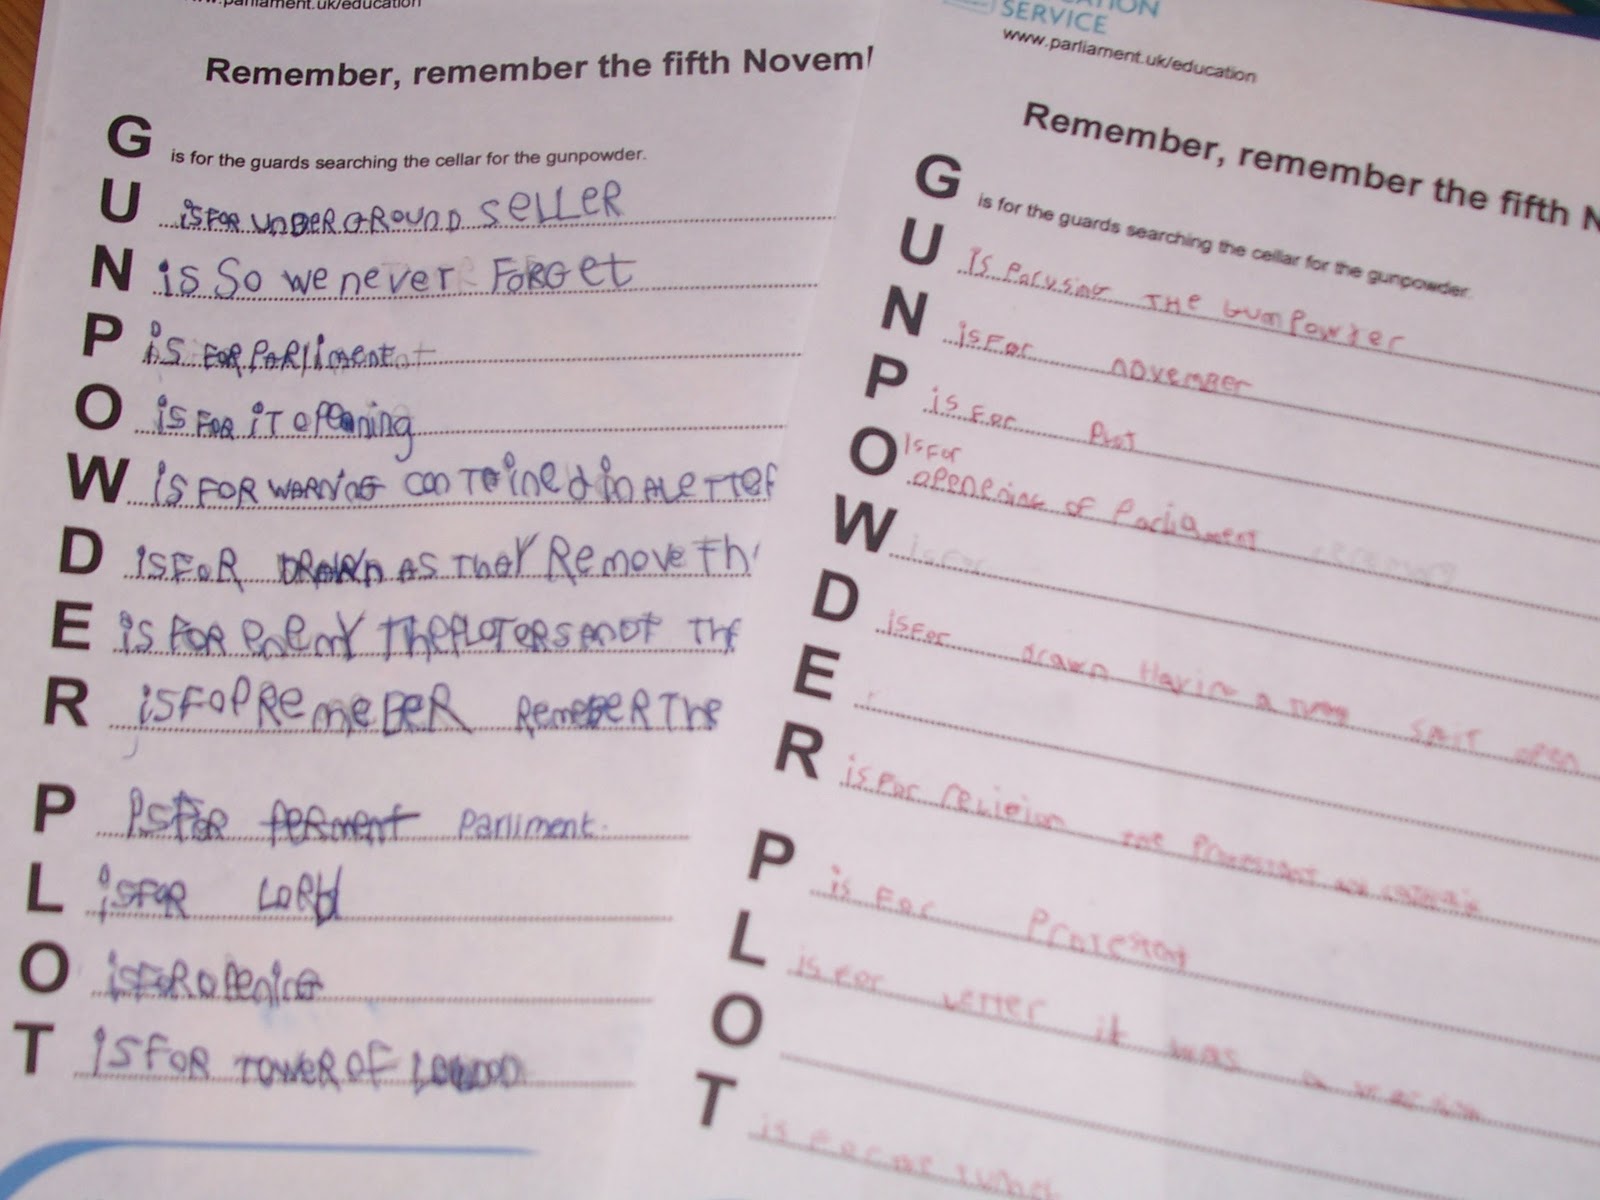 www.parliament.uk/education
Remember, remember the fifth Novem
G is for the guards searching the cellar for the gunpowder.
U isFOR UNDERGROUND SELLER
N is So we never FORGet
P is FOR PARliment
O is FOR iT opening
W iS FOR WARNiNG conTained in ALETTer
D iSFoR DRAWN AS THeY Remove Th
E iS FOR eneMY THePLOTERS
R iSFOR ReMeBER RemeBER THe
P iSFOR perment Parliment.
L iSFOR LORD
O iSFOR Opening
T iSFOR TOWER OF London
SERVICE
www.parliament.uk/education
Remember, remember the fifth N
G is for the guards searching the cellar for the gunpowder.
U is THe GunPowder
N isFor november
P is For Plot
O isFor
openening of Parliament
W isFor
D isFor drawn Having a open
E
R isFor religion the Protestant
P is For Protestant
L is For Letter it was a
O
T is For